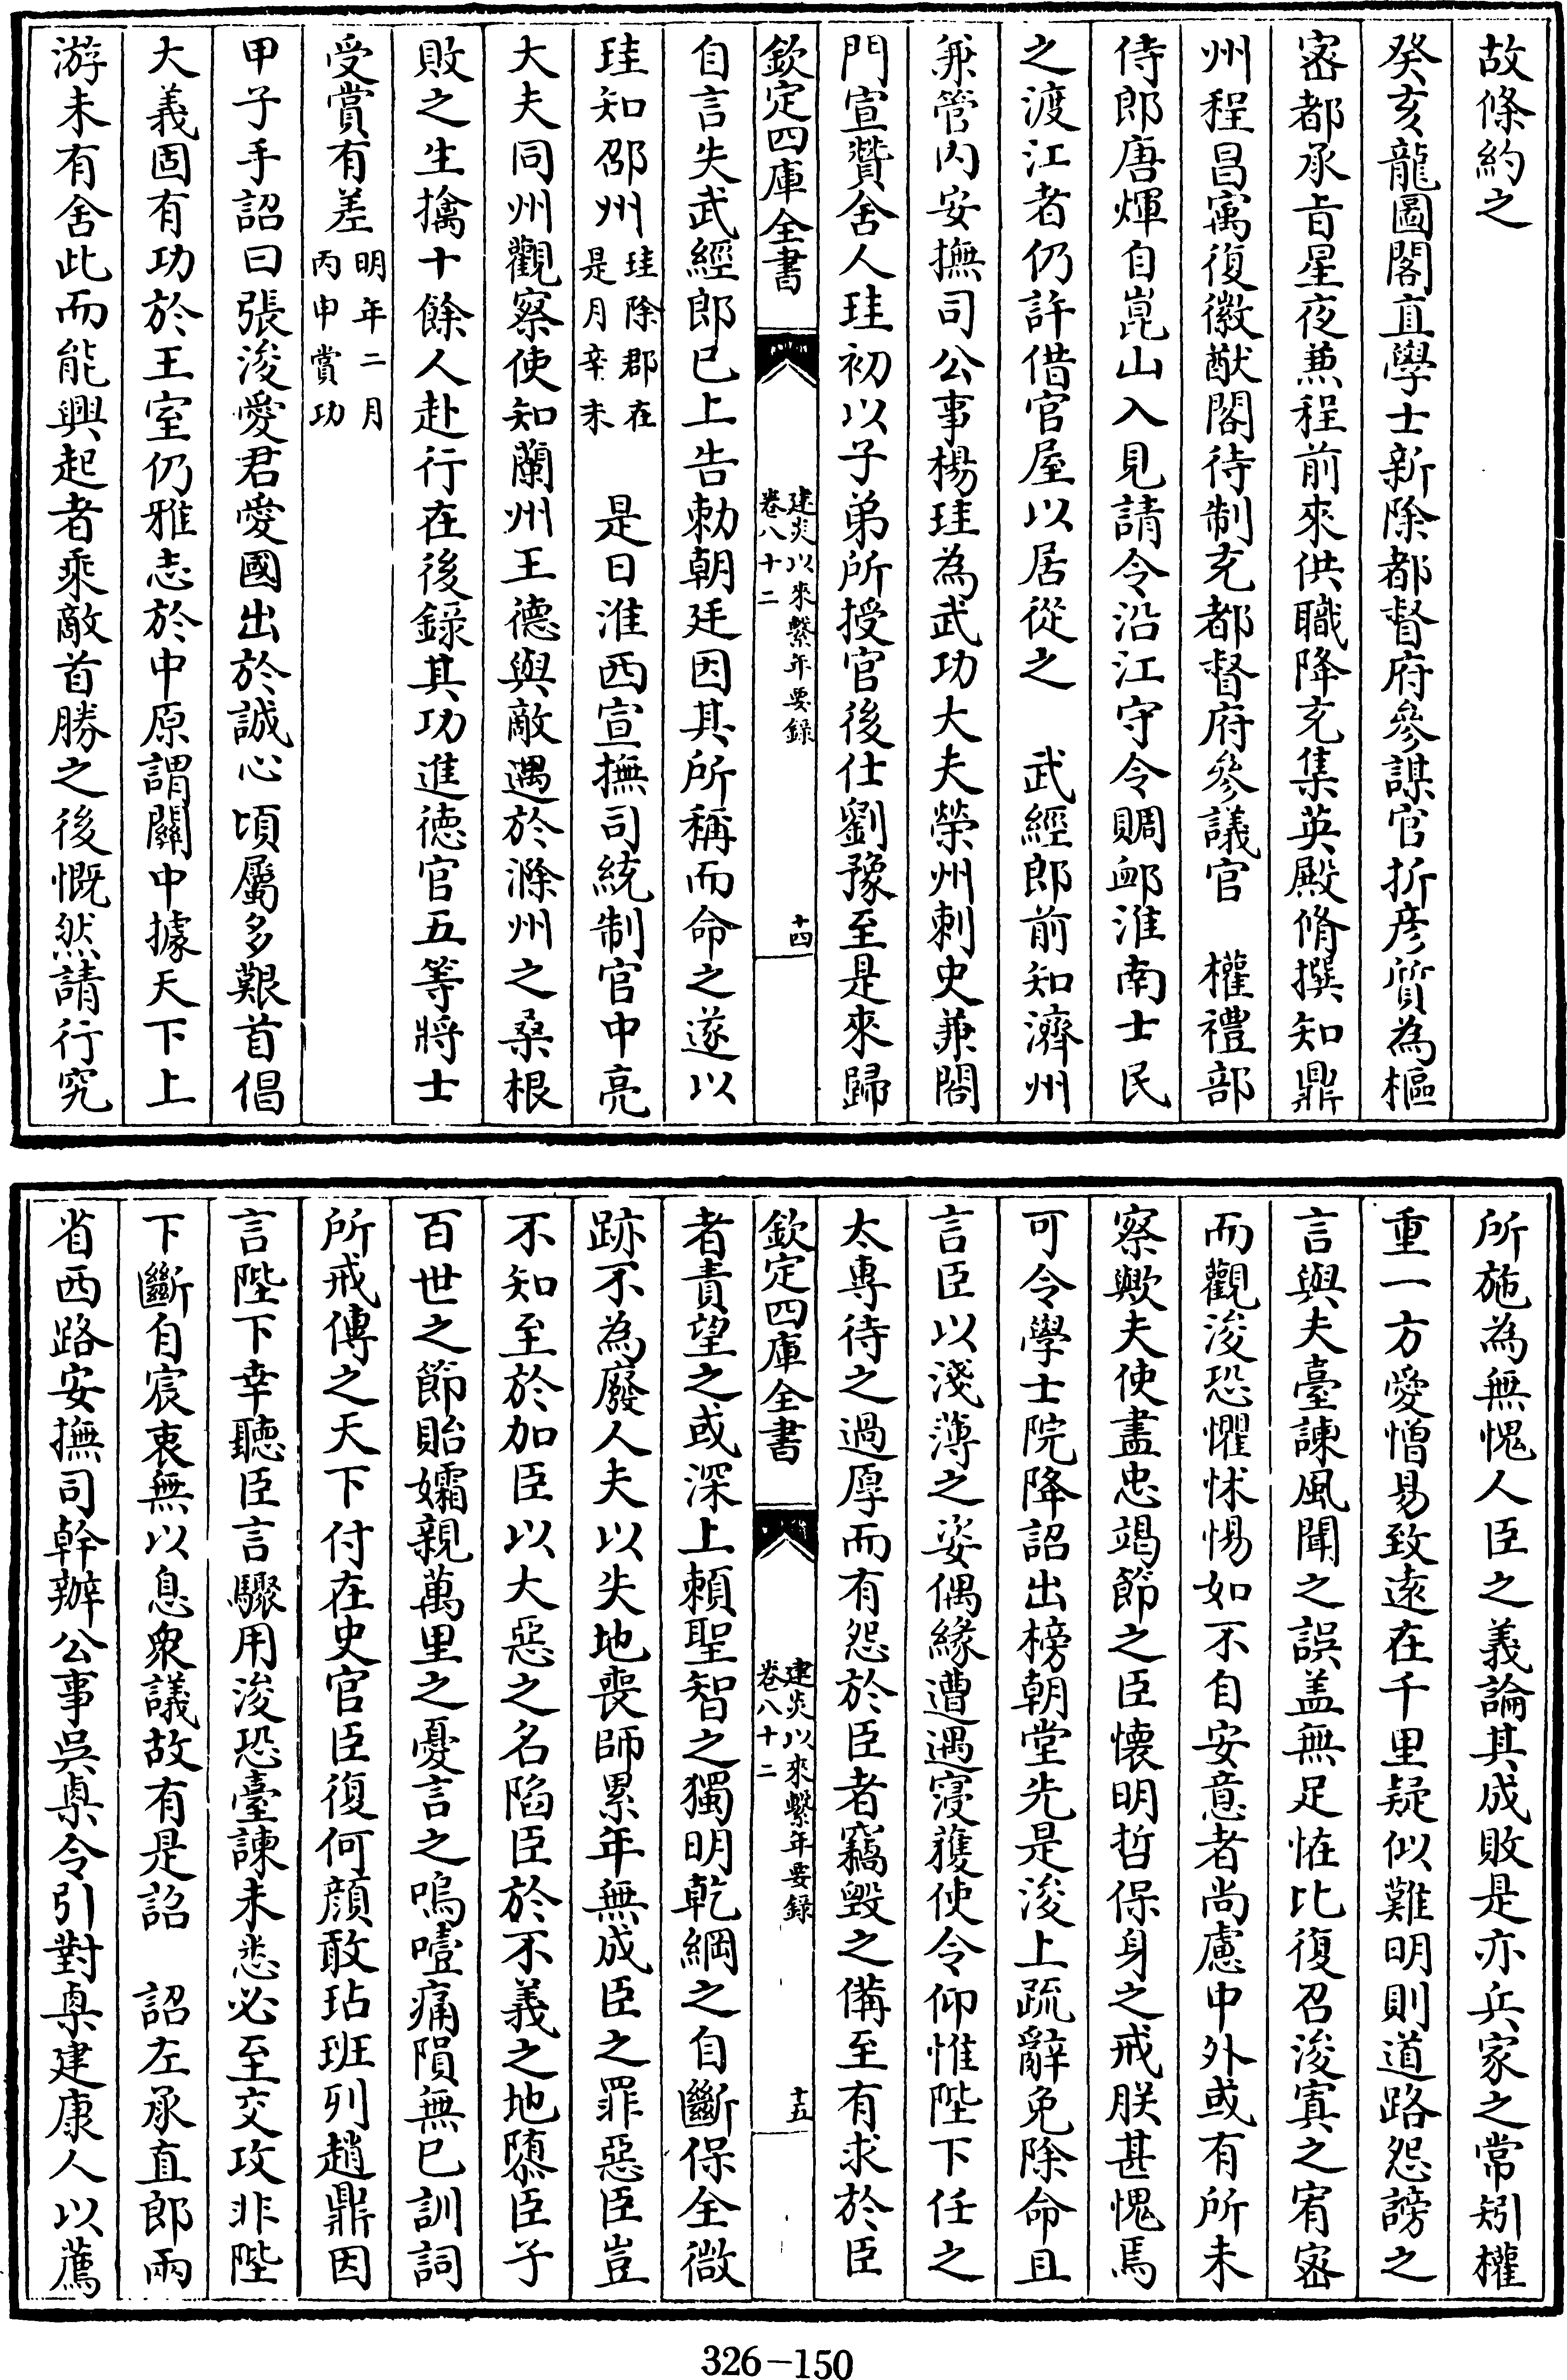 故條約之
癸亥龍圖閣直學士新除都督府參謀官折彦質為樞
宻都承旨星夜兼程前來供職降充集英殿脩撰知鼎
州程昌㝢復徽猷閣待制充都督府參議官　權禮部
侍郎唐煇自崑山入見請令沿江守令賙䘏淮南士民
之渡江者仍許借官屋以居從之　武經郎前知濟州
兼管内安撫司公事楊珪為武功大夫榮州刺史兼閤
門宣贊舍人珪初以子弟所授官後仕劉豫至是來歸
欽定四庫全書
建炎以來繫年要録
卷八十二
十四
自言失武經郎已上告勅朝廷因其所稱而命之遂以
珪知邵州珪除郡在是月辛未　是日淮西宣撫司統制官中亮
大夫同州觀察使知蘭州王德與敵遇於滁州之桑根
敗之生擒十餘人赴行在後録其功進徳官五等將士
受賞有差明年二月丙申賞功
甲子手詔曰張浚愛君愛國出於誠心頃屬多艱首倡
大義固有功於王室仍雅志於中原謂關中據天下上
游未有舍此而能興起者乘敵首勝之後慨然請行究
所施為無愧人臣之義論其成敗是亦兵家之常矧權
重一方愛憎易致逺在千里疑似難明則道路怨謗之
言與夫臺諫風聞之誤盖無足恠比復召浚寘之宥宻
而觀浚恐懼怵惕如不自安意者尚慮中外或有所未
察歟夫使盡忠竭節之臣懐明哲保身之戒朕甚愧焉
可令學士院降詔出榜朝堂先是浚上疏辭免除命且
言臣以淺薄之姿偶縁遭遇寖獲使令仰惟陛下任之
太專待之過厚而有怨於臣者竊毁之備至有求於臣
欽定四庫全書
建炎以來繫年要録
卷八十二
十五
者責望之或深上頼聖智之獨明乾綱之自斷保全微
跡不為廢人夫以失地喪師累年無成臣之罪惡臣豈
不知至於加臣以大惡之名陷臣於不義之地隳臣子
百世之節貽孀親萬里之憂言之嗚噎痛隕無已訓詞
所戒傳之天下付在史官臣復何顔敢玷班列趙鼎因
言陛下幸聽臣言驟用浚恐臺諫未悉必至交攻非陛
下斷自宸衷無以息衆議故有是詔　詔左承直郎兩
省西路安撫司幹辦公事吳㮚令引對㮚建康人以薦
326-150